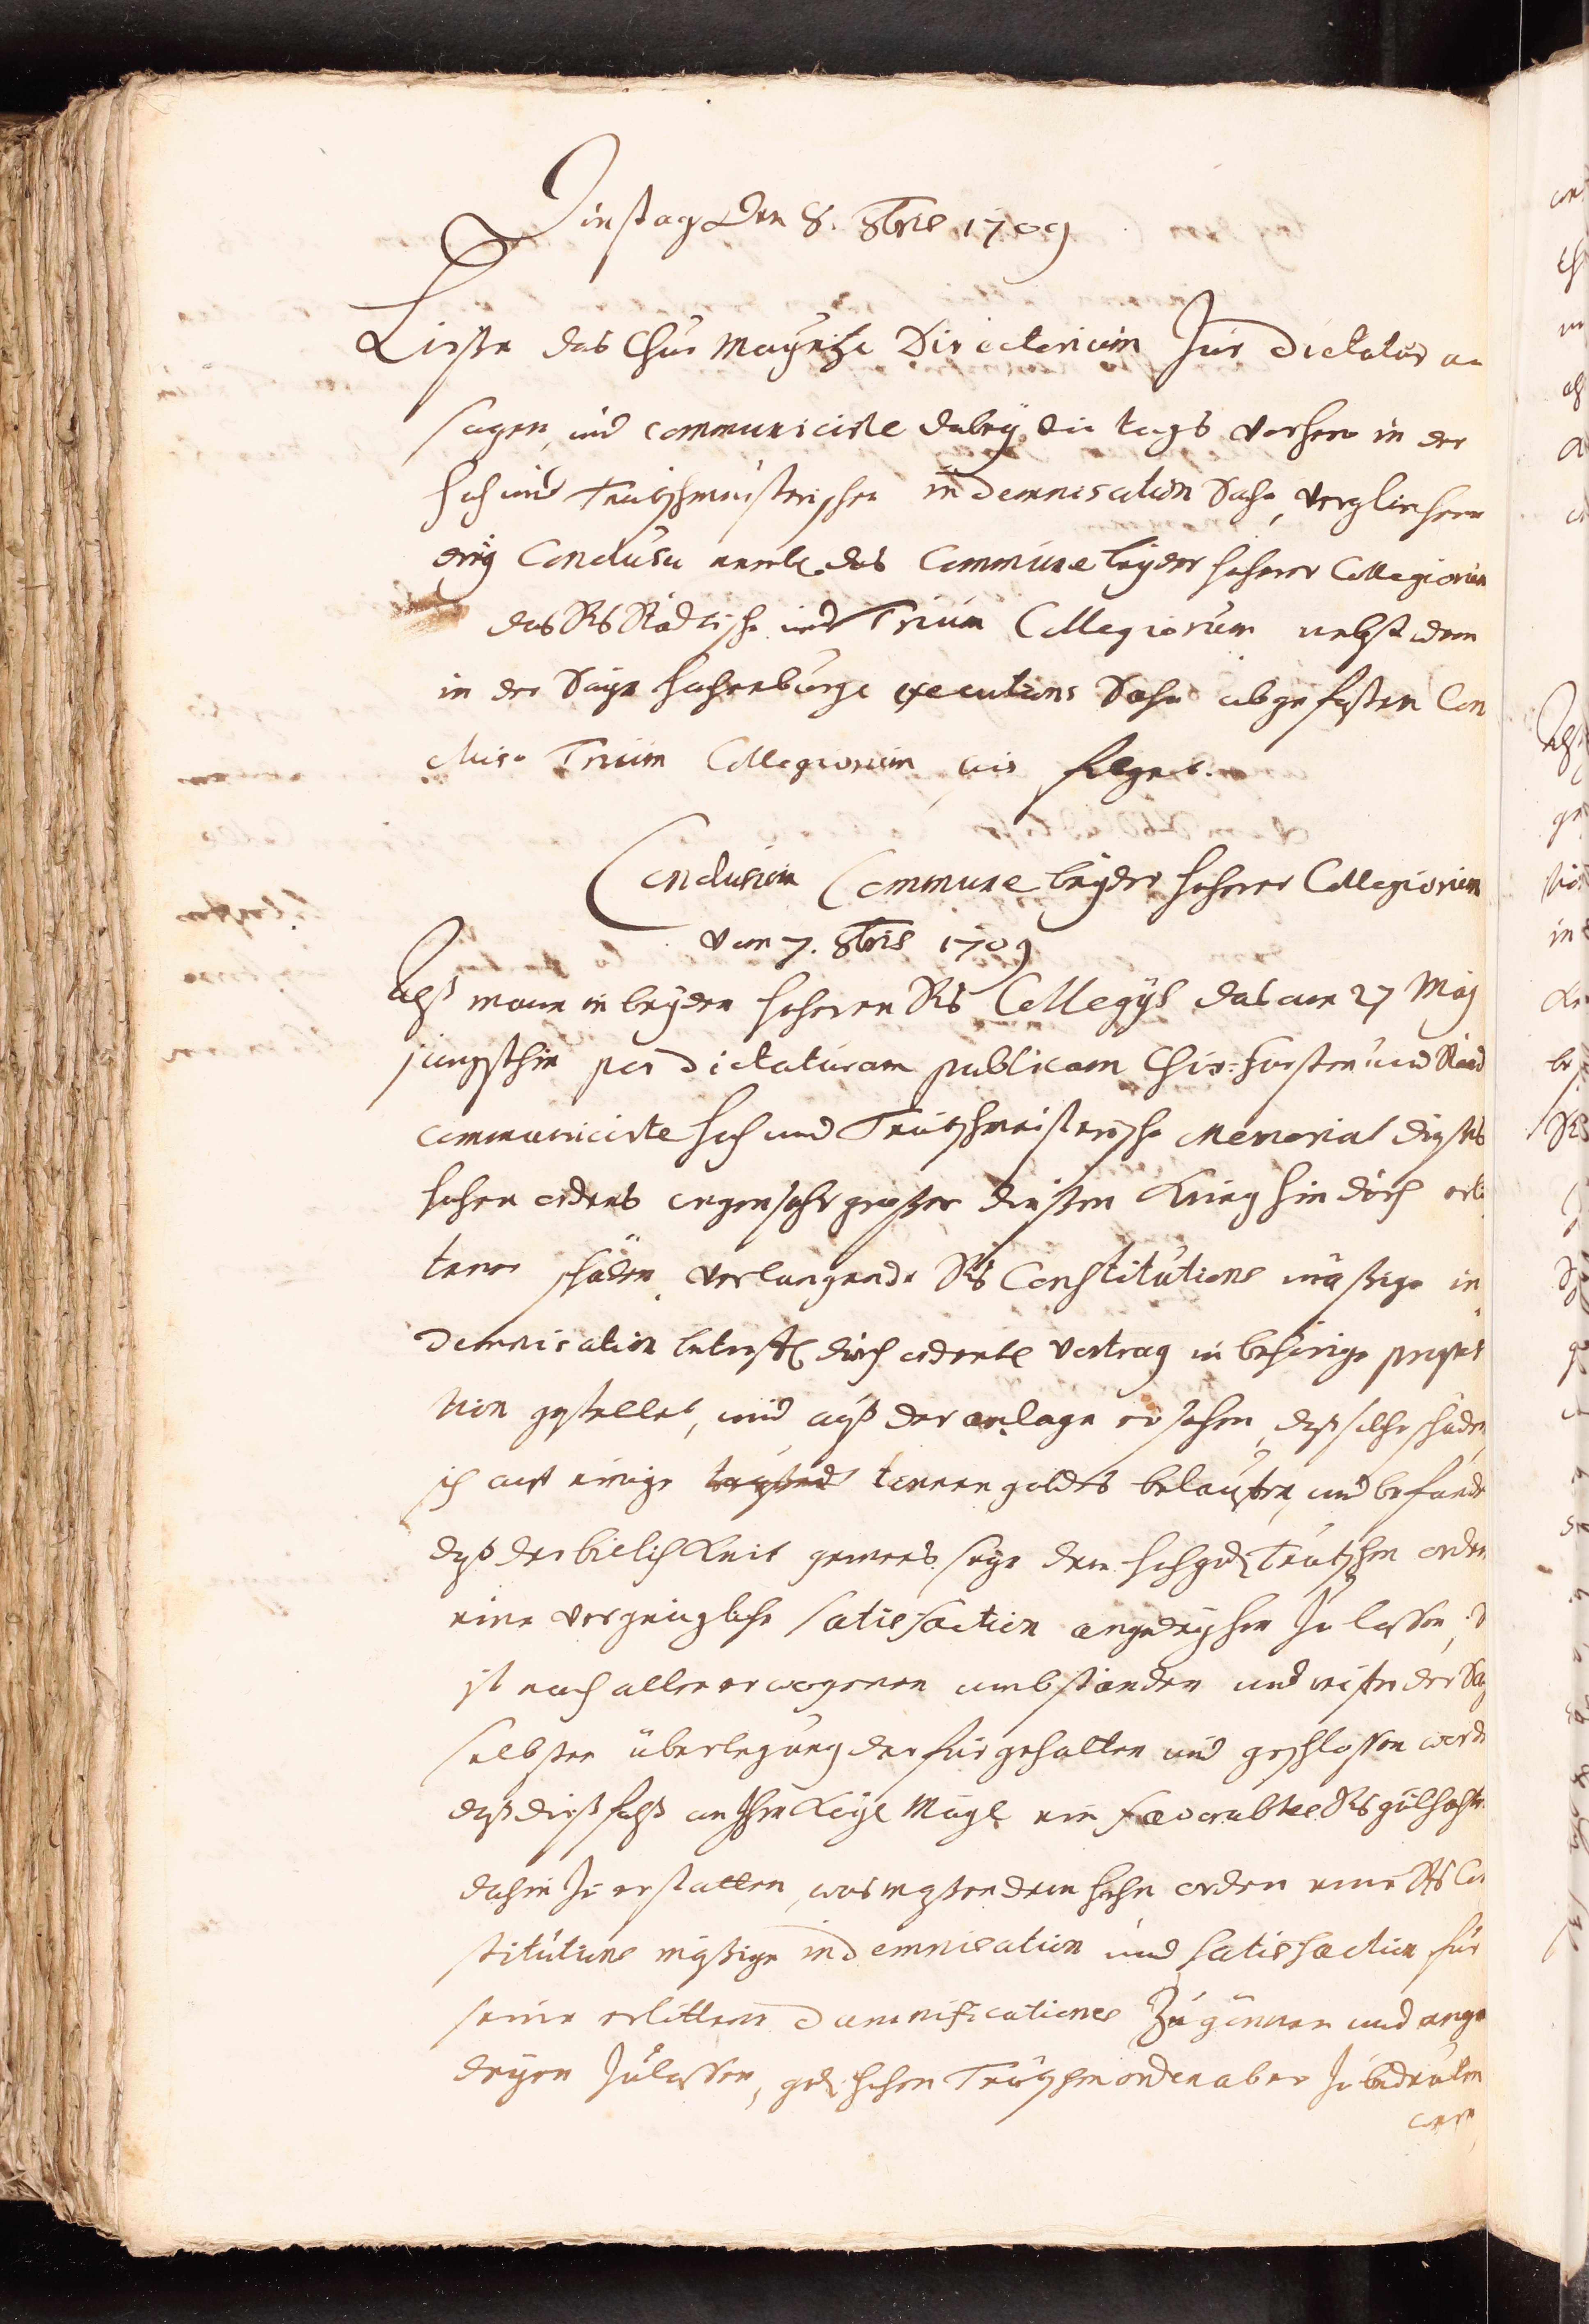 Dinstag den 8. 8bris 1709
Liesse das Chur Mayntze Directorium zur Dictatur an
sagen, und communicirte dabey die tags vorhero in der
hoch und Teutschmeisterischen indemnisation Sache, verglichene
drey Conclusa nemblich das Commune beyder höherer Collegiorum
das Rs Städtische und Trium Collegiorum nebst dem
in der Sayn Hachenburge executions Sache abgefasten Con
cluso Trium Collegiorum, wie folget.
Conclusum Commune beyder höherer Collegiorum
vom 7. 8bris 1709
Alß mann in beyden höheren Rs Collegÿs das am 27 Maj
jüngsthin per Dictaturam publicam Chur-Fürsten und Ständ
communicirte hoch und Teutschmeisterische Memorial dieses
hohen ordens wegen sehr großer diesen Krieg hindurch erlit
tener schäden, verlangende Rs Constitutions mäßige in
demnisation betreff. durch ordentl. Vortrag in behörige proposi
tion gestellet, und auß der anlage ersehen, daß solche schäden
sich auff einige tonnen goldes belauffen, und befunden
daß der billichkeit gemees seye dem hochged. Teutschen orden
eine vergnügliche satisfaction angedeyhen zu lassen,
ist nach allen erwogenen umbständen und reiffer der Sach
selbsten überlegung darfür gehalten und geschlossen worden
daß dießfalß an Ihre Kayl. Mayl. ein favorables Rs gutachten
dahin zu erstatten, was maßen dem hohen orden eine Rs Con
stitutions mäßige indemnisation und satisfaction für
seine erlittene damnificationes zu gönnen und ange
deyen zulassen, ged. hohen Teutschen orden aber zu bedeuten